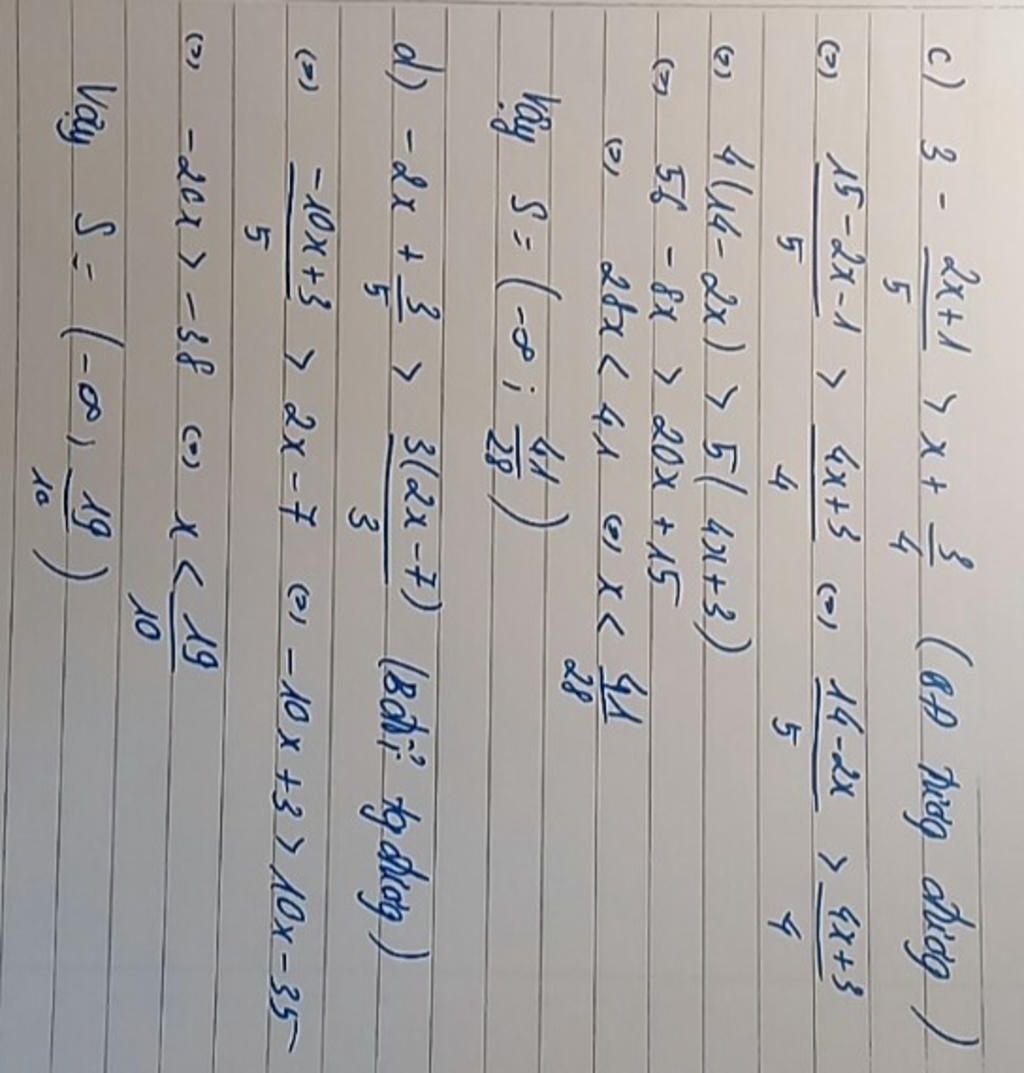 c) 3 - \frac{2x+1}{5} > x + \frac{3}{4} (BĐ tương đương)
⇔ \frac{15-2x-1}{5} > \frac{4x+3}{4} ⇔ \frac{14-2x}{5} > \frac{4x+3}{4}
⇔ 4(14-2x) > 5(4x+3)
⇔ 56 - 8x > 20x + 15
⇔ 28x < 41 ⇔ x < \frac{41}{28}
Vậy S = (-∞; \frac{41}{28})
d) -2x + \frac{3}{5} > \frac{3(2x-7)}{3} (Bđổi tgđương)
⇔ \frac{-10x+3}{5} > 2x - 7 ⇔ -10x + 3 > 10x - 35
⇔ -20x > -38 ⇔ x < \frac{19}{10}
Vậy S = (-∞; \frac{19}{10})